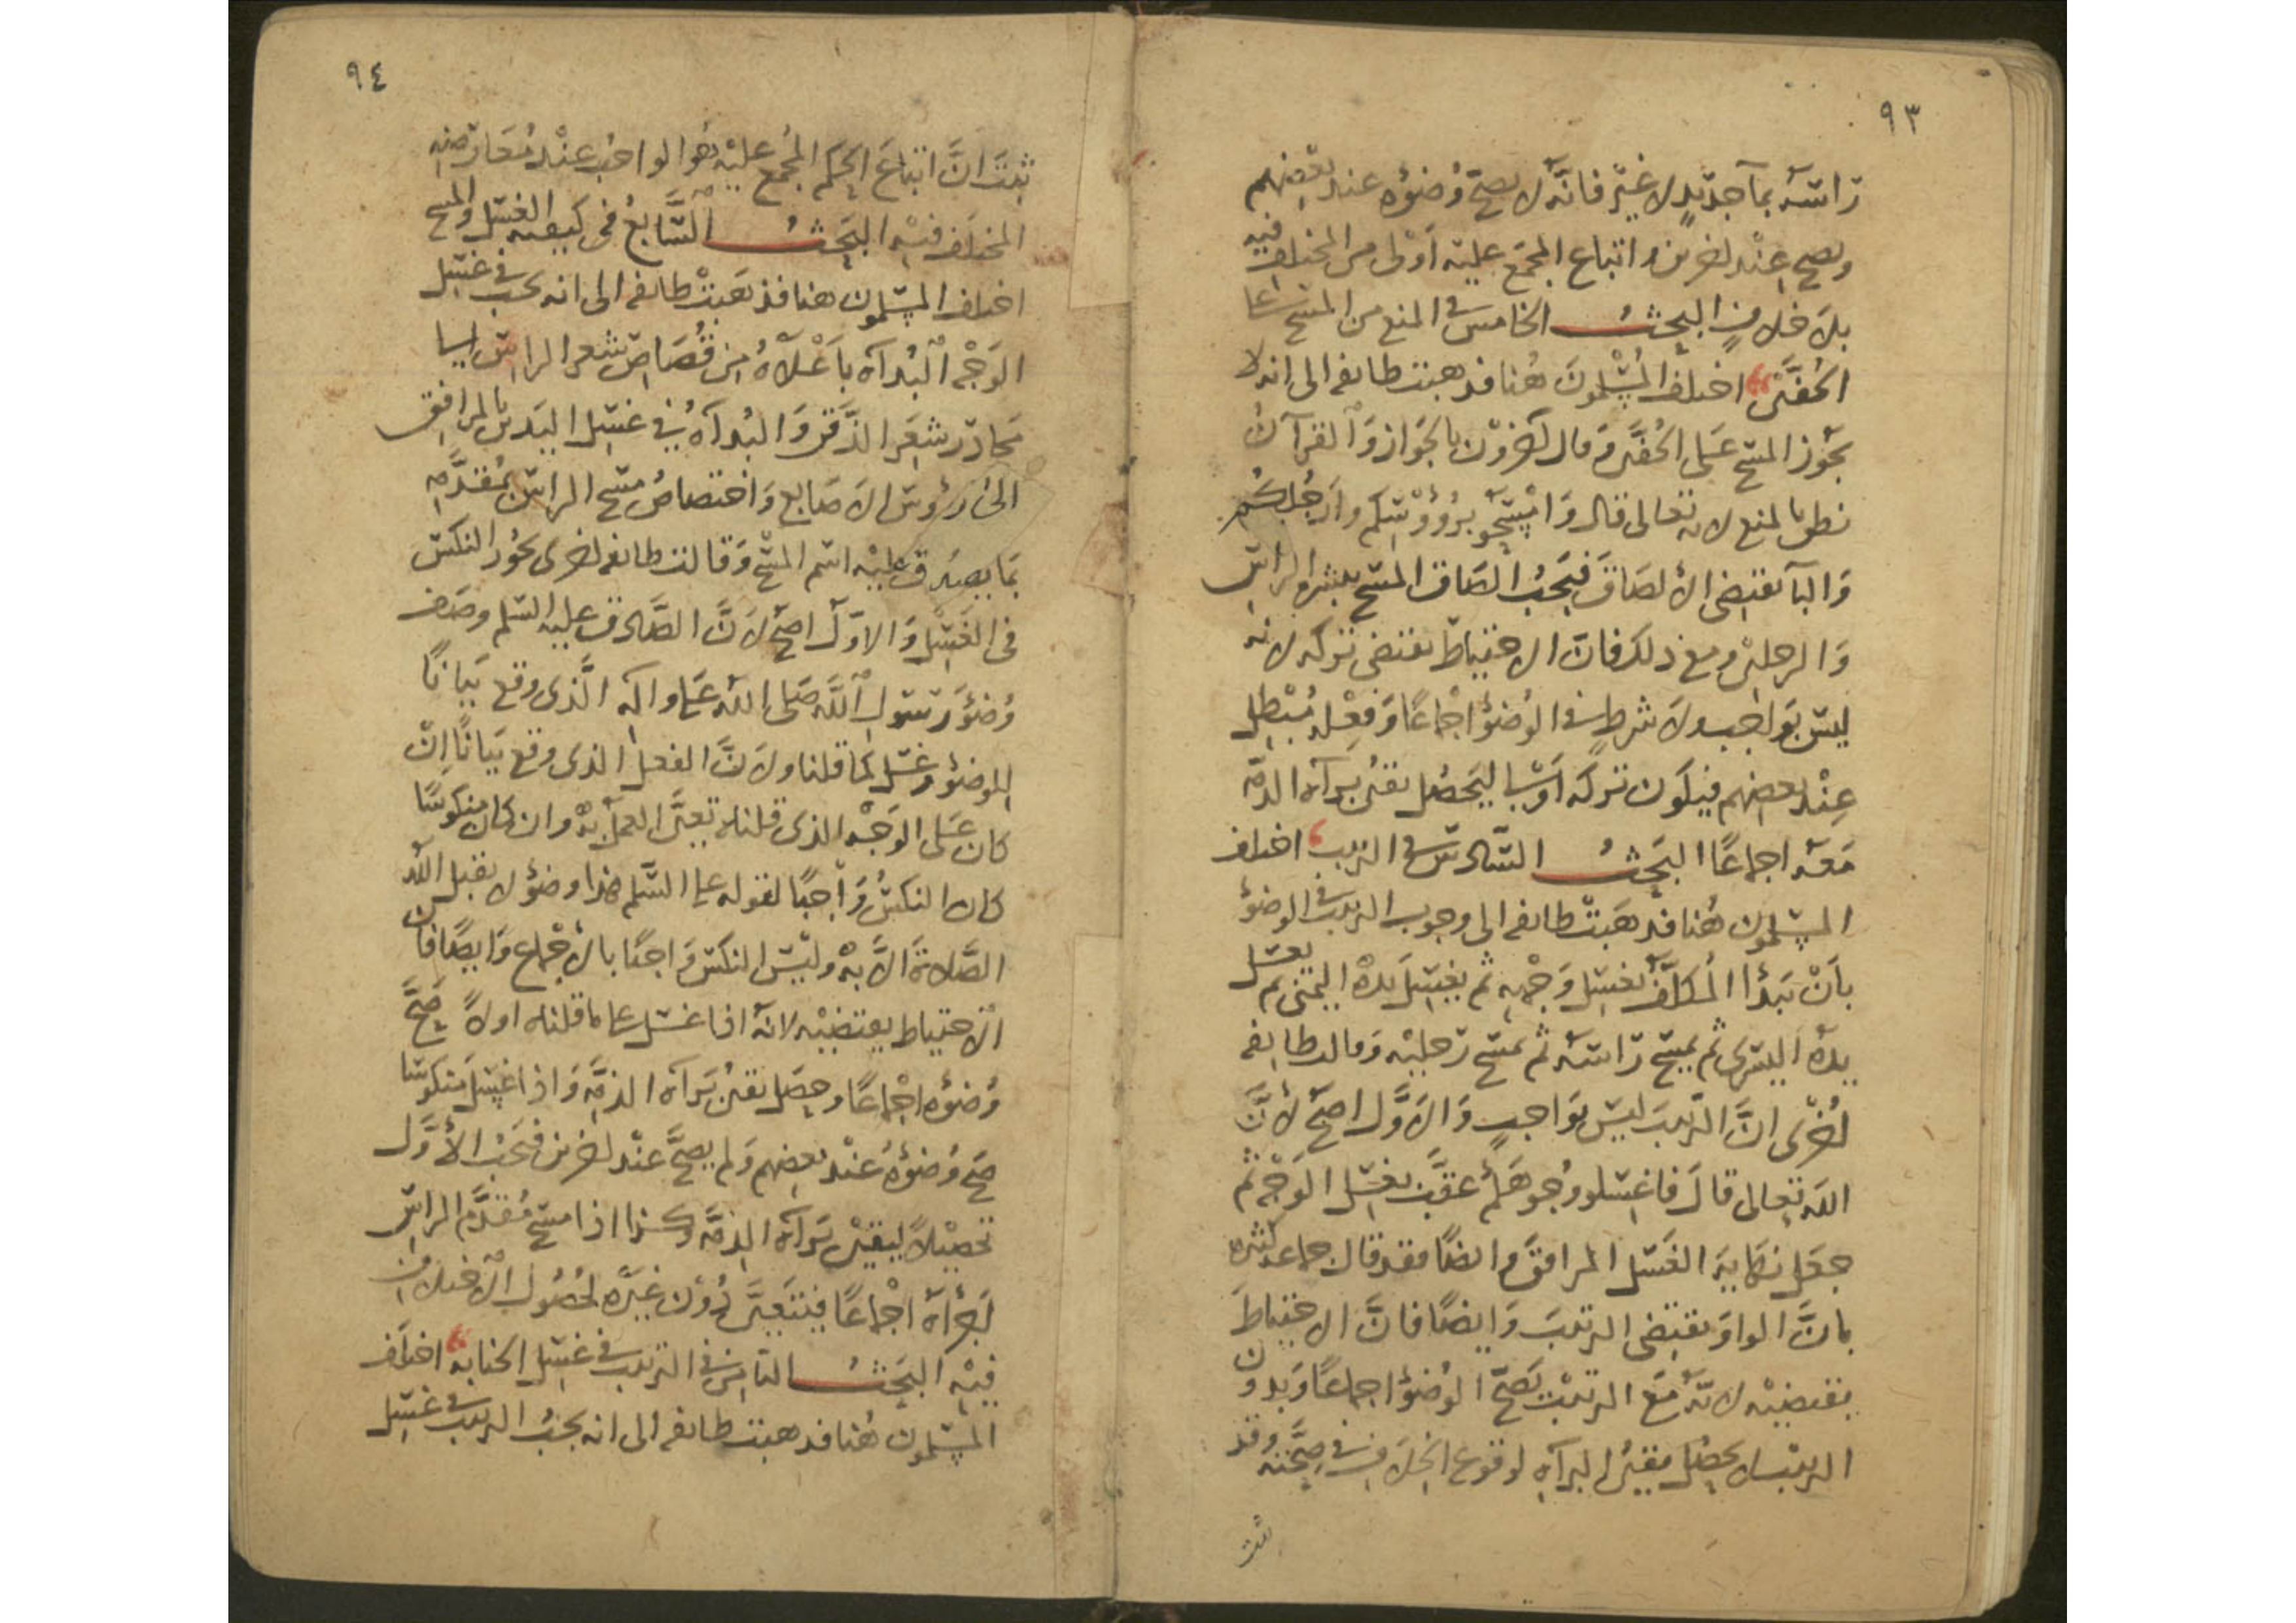 ٩٣
راسه بمآ جديد لا غير فانه لا يصح وضوه عند بعضهم
ويصح عند اخرين واتباع المجمع عليه اولى من المختلف فيه
بلا خلاف البحث الخامس في المنع من المسح على
الخفين اختلف المسلمون هنا فذهبت طايفه الى انه لا
يجوز المسح على الخفين وقال اخرون بالجواز والقرآن
نطق بالمنع لانه تعالى قال وامسحو برؤوسكم وارجلكم
والبآ تقتضى الالصاق فيجب الصاق المسح ببشره الراس
والرجلين ومع ذلك فان الاحتياط يقتضى تركه لانه
ليس بواجب ولا شرط في الوضؤ اجماعا وفعله مبطل
عند بعضهم فيكون تركه اولى ليحصل يقين برآه الذمه
معه اجماعا البحث السادس في الترتيب اختلف
المسلمون هنا فذهبت طايفه الى وجوب الترتيب في الوضؤ
بان يبدأ المكلف بغسل وجهه ثم يغسل يده اليمنى ثم يغسل
يده اليسرى ثم يمسح راسه ثم يمسح رجليه وقالت طايفه
اخرى ان الترتيب ليس بواجب والاول اصح لان
الله تعالى قال فاغسلو وجوهكم عقب بغسل الوجه ثم
جعل نهاية الغسل المرافق وايضا فقد قال جماعه كثيره
بان الواو تقتضى الترتيب وايضا فان الاحتياط
يقتضيه لانه مع الترتيب يصح الوضؤ اجماعا وبدون
الترتيب لا يحصل يقين البرآه لوقوع الخلاف في صحته وقد
ثبت
٩٤
ثبت ان اتباع الحكم المجمع عليه هو الواجب عند معارضه
المختلف فيه البحث السابع في كيفيه الغسل والمسح
اختلف المسلمون هنا فذهبت طايفه الى انه يجب في غسل
الوجه البدآه باعلاه من قصاص شعر الراس الى
محادر شعر الذقن والبدآه في غسل اليدين بالمرافق
الى رؤوس الاصابع واختصاص مسح الراس بمقدمه
بما يصدق عليه اسم المسح وقالت طايفه اخرى يجوز النكس
في الغسل والاول اصح لان الصادق عليه السلم وصف
وضؤ رسول الله صلى الله عليه واله الذى وقع بيانا
للوضؤ وغسل كما قلنا ولان الفعل الذى وقع بيانا ان
كان على الوجه الذى قلناه تعين العمل به وان كان منكوسا
كان النكس واجبا لقوله عليه السلم هذا وضؤ لا يقبل الله
الصلاة الا به وليس النكس واجبا بالاجماع وايضا فان
الاحتياط يقتضيه لانه اذا غسل على ما قلناه اولا صح
وضؤه اجماعا وحصل يقين برآه الذمه واذا غسل منكوسا
صح وضؤه عند بعضهم ولم يصح عند اخرين فيجب الاول
تحصيلا ليقين برآه الذمه وكذا اذا مسح مقدم الراس
اجزاه اجماعا فيتعين دون غيره لحصول الاختلاف
فيه البحث الثامن في الترتيب في غسل الجنابه اختلف
المسلمون هنا فذهبت طايفه الى انه يجب الترتيب في غسل